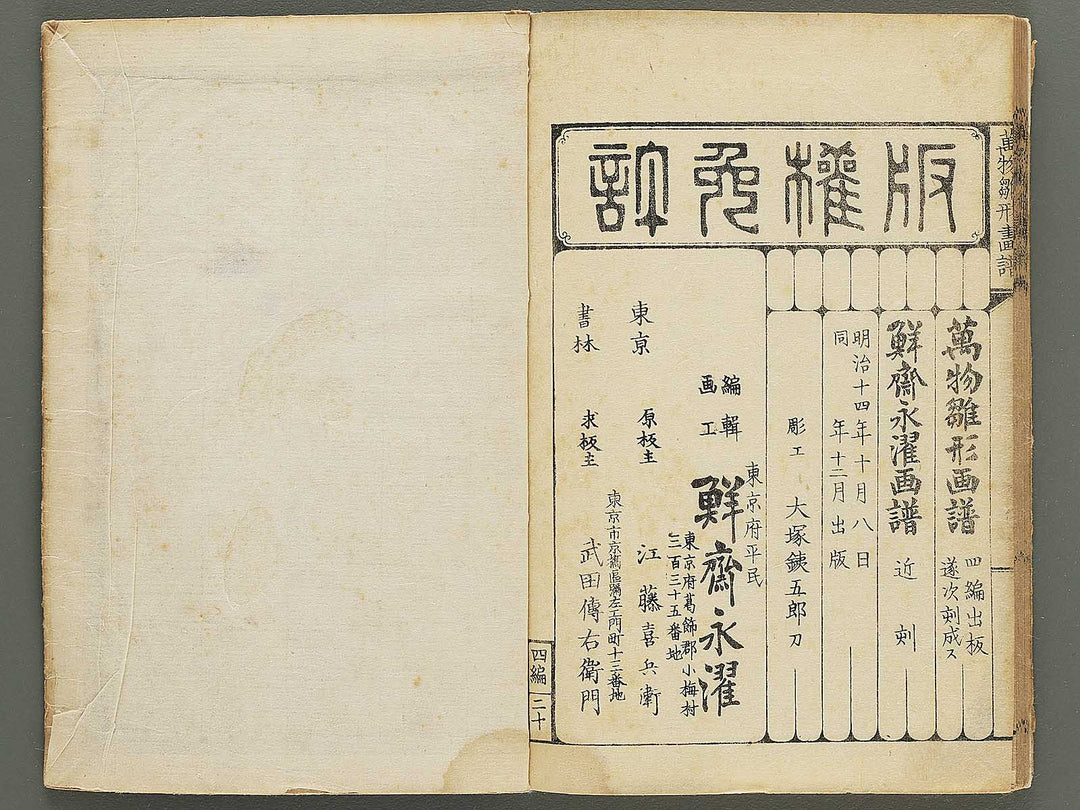 版權免許
萬物雛形畫譜
萬物雛形画譜
四編出板
遂次刻成ス
鮮齋永濯画譜
近刻
明治十四年十月八日
同年十二月出版
彫工 大塚銕五郎刀
東京府平民
編輯
画工
鮮齋永濯
東京府葛飾郡小梅村
三百三十五番地
東京 原板主 江藤喜兵衛
東京市京橋區
町十三番地
書林 求板主 武田傳右衛門
四編 二十